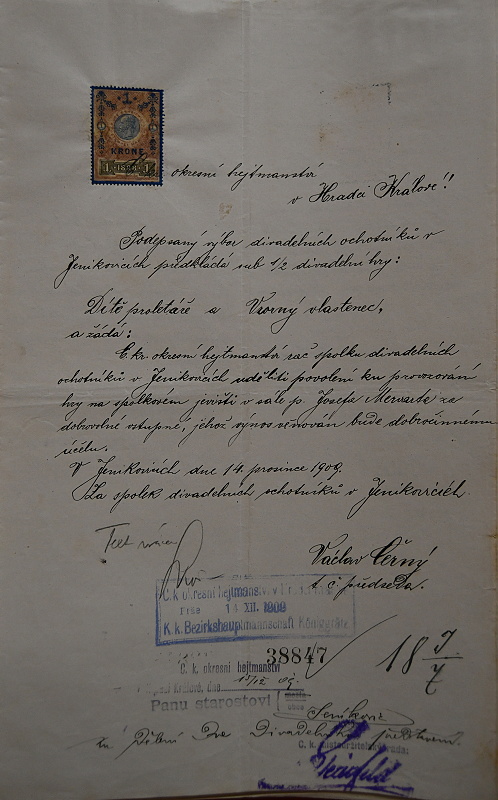 1
KRONE
1 1898 1
okresní hejtmanství
v Hradci Králové!!
Podepsaný výbor divadelních ochotníků v
Jeníkovicích předkládá sub 1/2 divadelní hry:
Dítě proletáře a Vzorný vlastenec,
a žádá:
C. kr. okresní hejtmanství rač spolku divadelních
ochotníků v Jeníkovicích uděliti povolení ku provozování
hry na spolkovém jevišti v sále p. Josefa Merwarta za
dobrovolné vstupné, jehož výnos věnován bude dobročinnému
účelu.
V Jeníkovicích dne 14. prosince 1909.
Za spolek divadelních ochotníků v Jeníkovicích.
Václav Černý
t. č. předseda.
C. k. okresní hejtmanství v
XII. 1909
K. k. Bezirkshauptmannschaft Königgrätz
38847
18 9/7
C. k. okresní hejtmanství
Králové, dne
09.
Panu starostovi